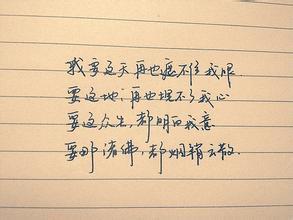 我要这天再也遮不住我眼
要这地,再也埋不了我心
要这众生,都明白我意
要那诸佛,都烟消云散.